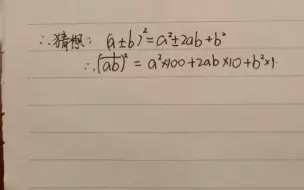 ∴猜想：(a±b)²=a²±2ab+b²
∴(\overline{ab})²=a²×100+2ab×10+b²×1